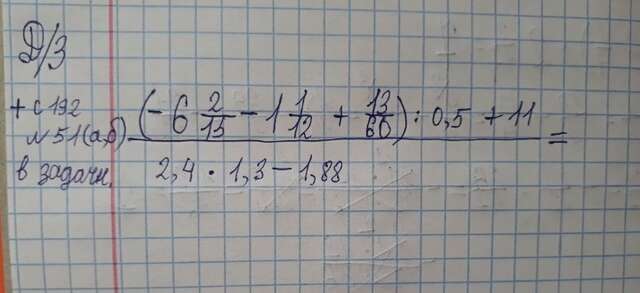 Д/З
+ с 192
№ 51 (а,б)
в задачн.
(-6 2/15 - 1 1/12 + 13/60) : 0,5 + 11
=
2,4 · 1,3 - 1,88